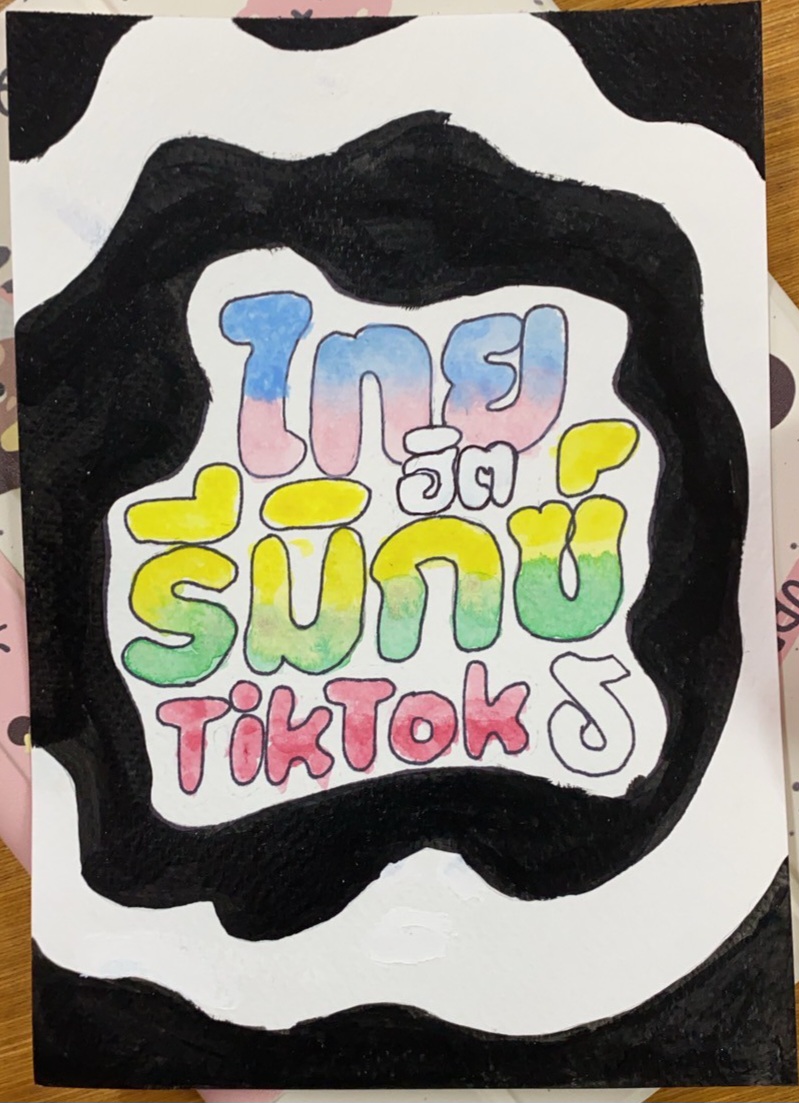 ไทย
ฮิต
รีมิกซ์
TikTok